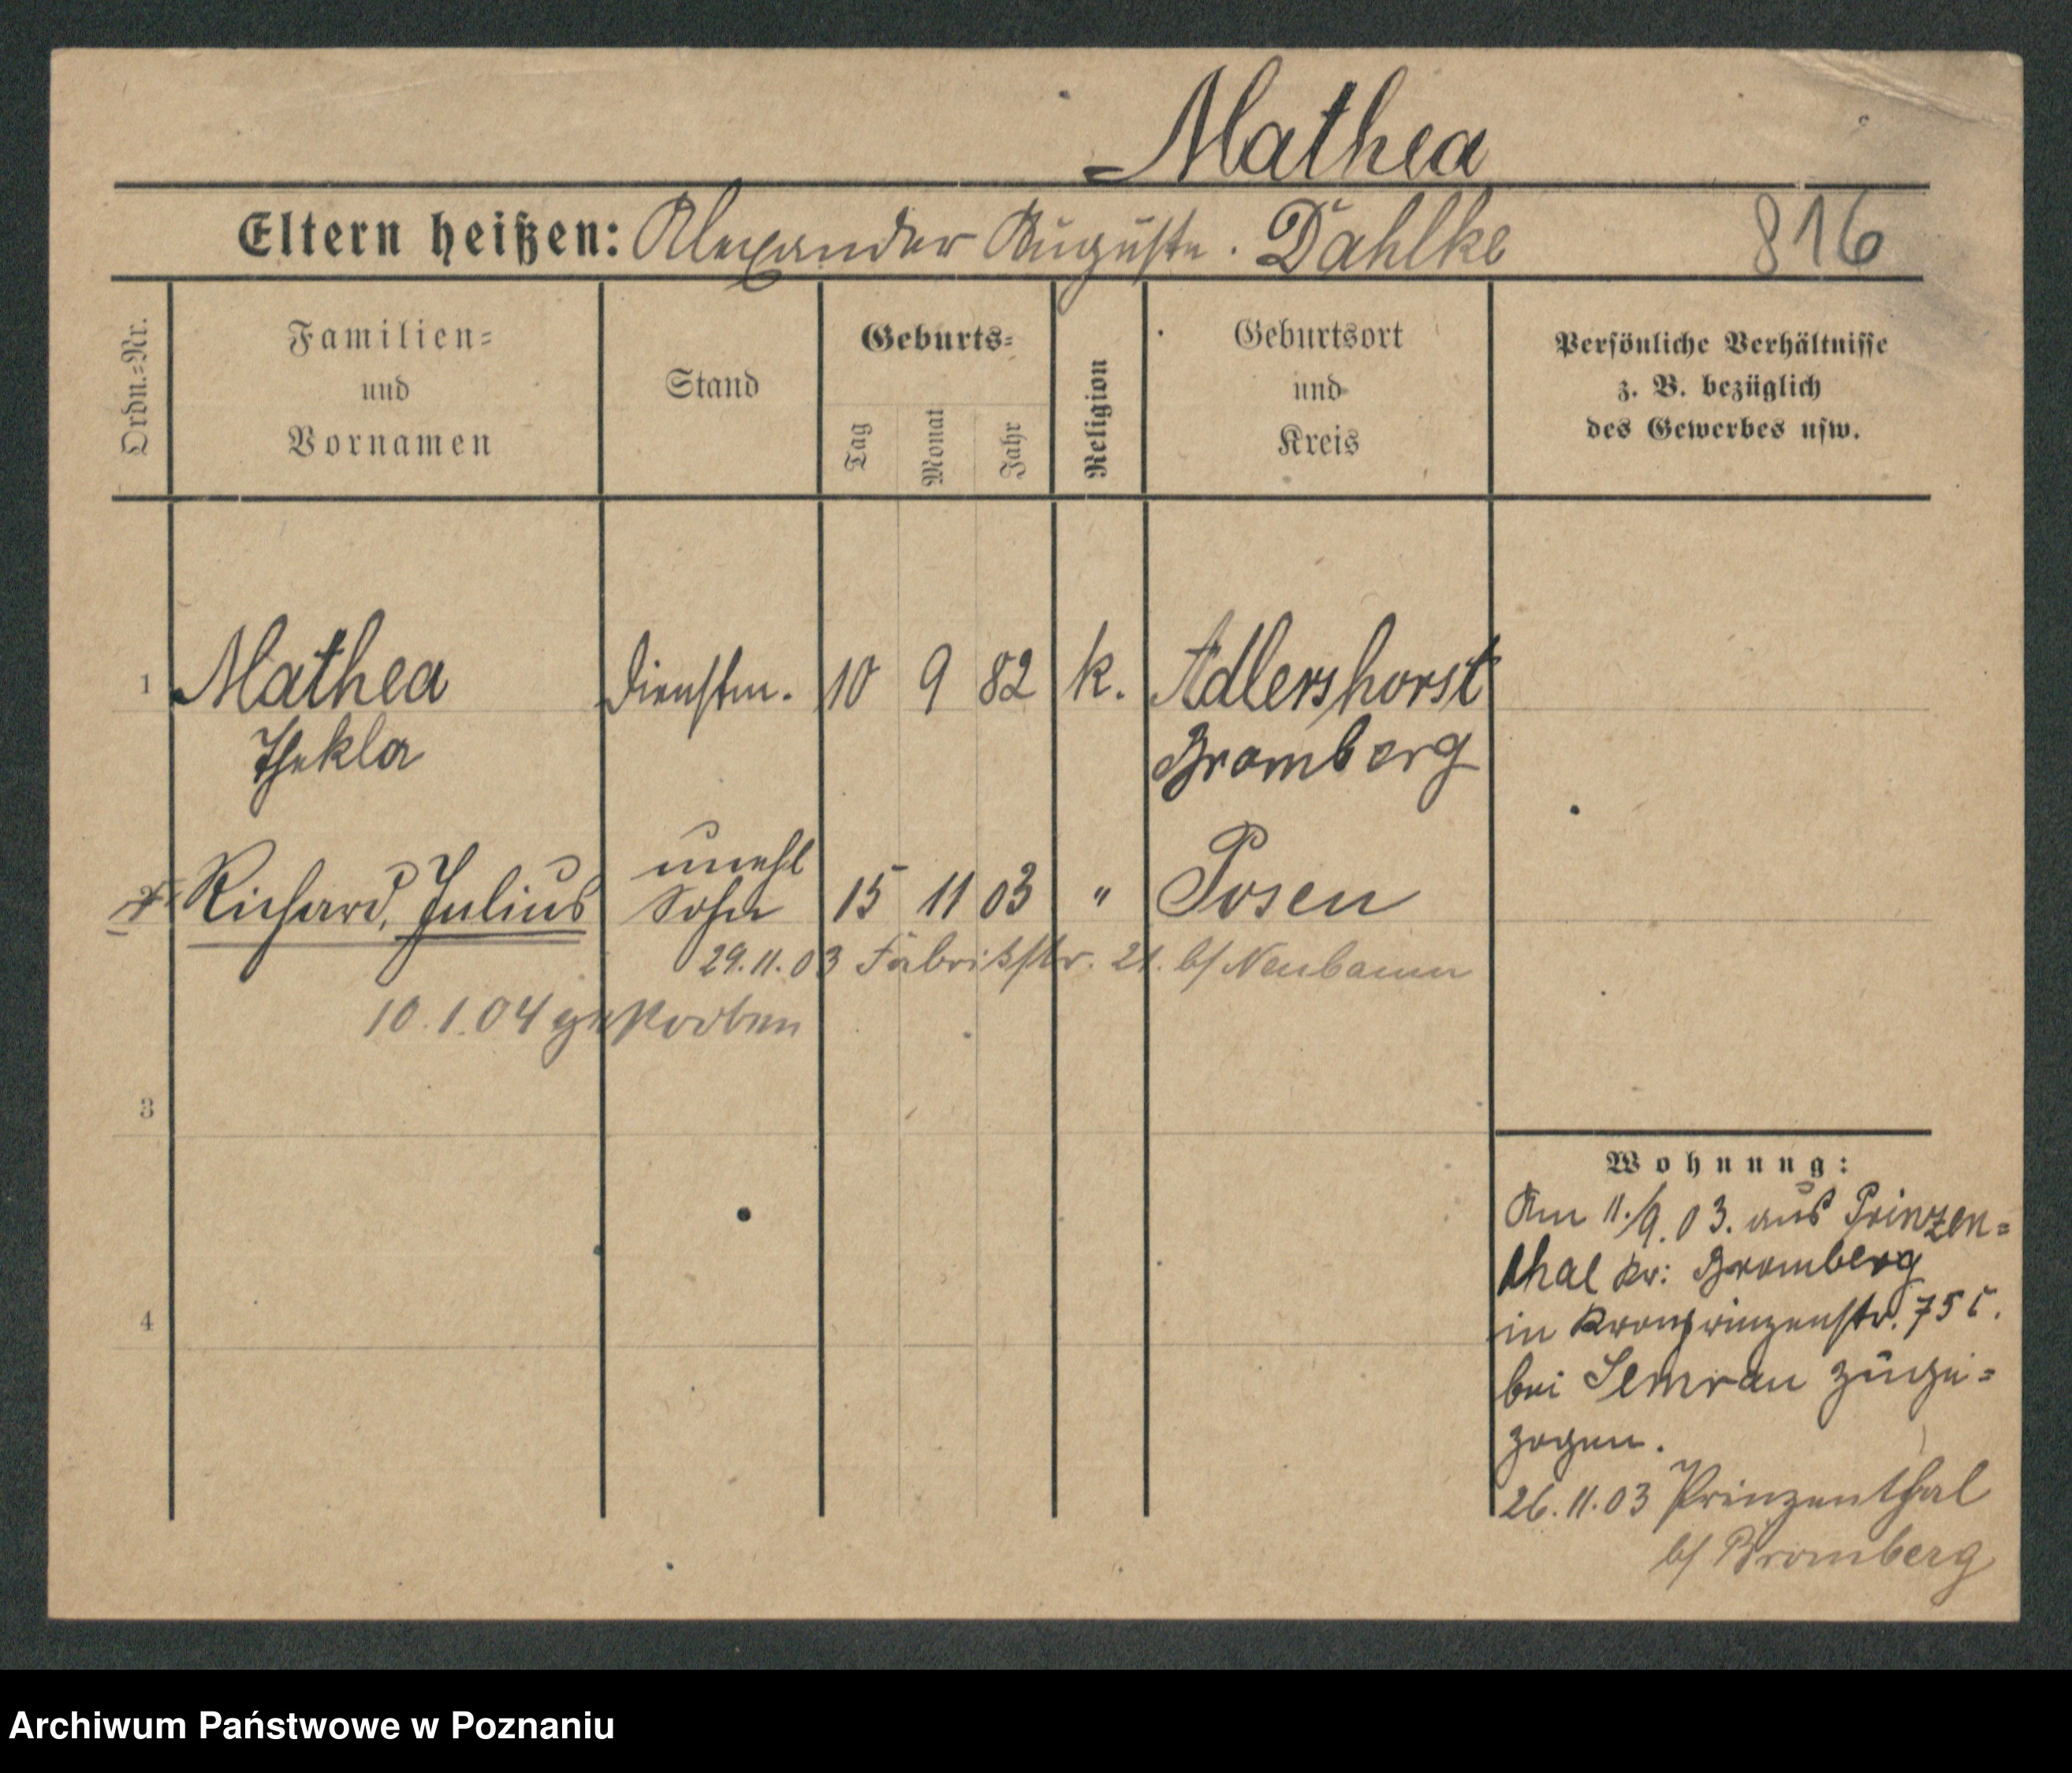 Mathea
Eltern heißen: Alexander Auguste. Dahlke 816
Ordn.-Nr.
Familien-
und
Vornamen
Stand
Geburts-
Tag
Monat
Jahr
Religion
Geburtsort
und
Kreis
Persönliche Verhältnisse
z. B. bezüglich
des Gewerbes usw.
1 Mathea Dienstm. 10 9 82 k. Adlershorst
Thekla Bromberg
unehl
Richard, Julius Sohn 15 11 03 " Posen
29.11.03 Fabrikstr. 21. b/ Neubaum
10.1.04 gestorben
3
Wohnung:
Am 11./9.03. aus Prinzen=
thal Kr: Bromberg
4
in Kronprinzenstr. 75
bei Semrau zuge=
zogen.
26.11.03 Prinzenthal
b/ Bromberg
Archiwum Państwowe w Poznaniu